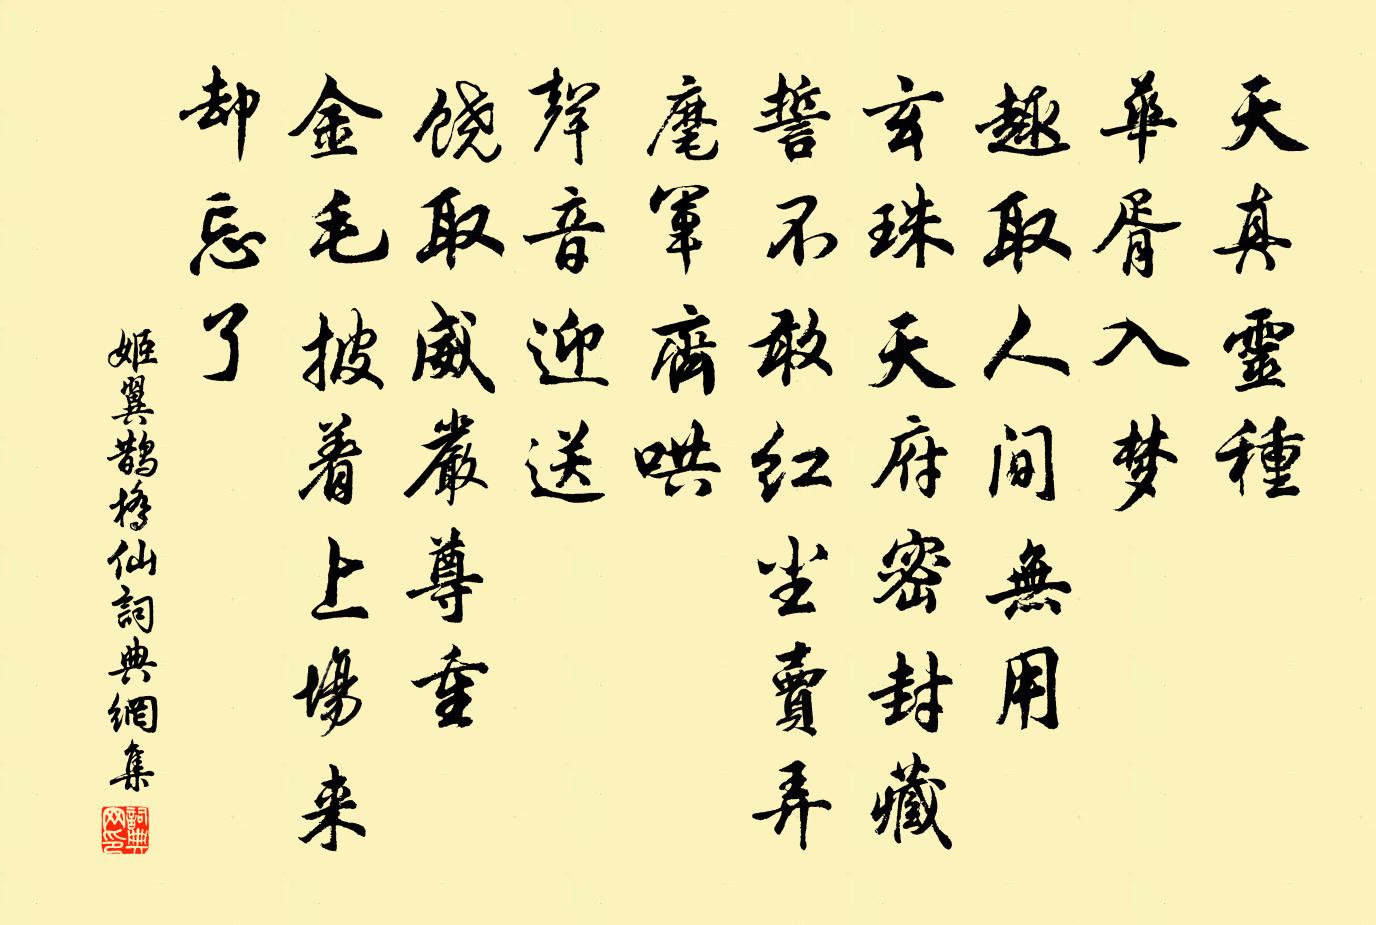 天真靈種
華胥入梦
趣取人间無用
玄珠天府密封藏
誓不敢红尘賣弄
麾軍齊哄
聲音迎送
饶取威嚴尊重
金毛披着上場来
却忘了
姬翼鹊橋仙詞典網集
詞典网印